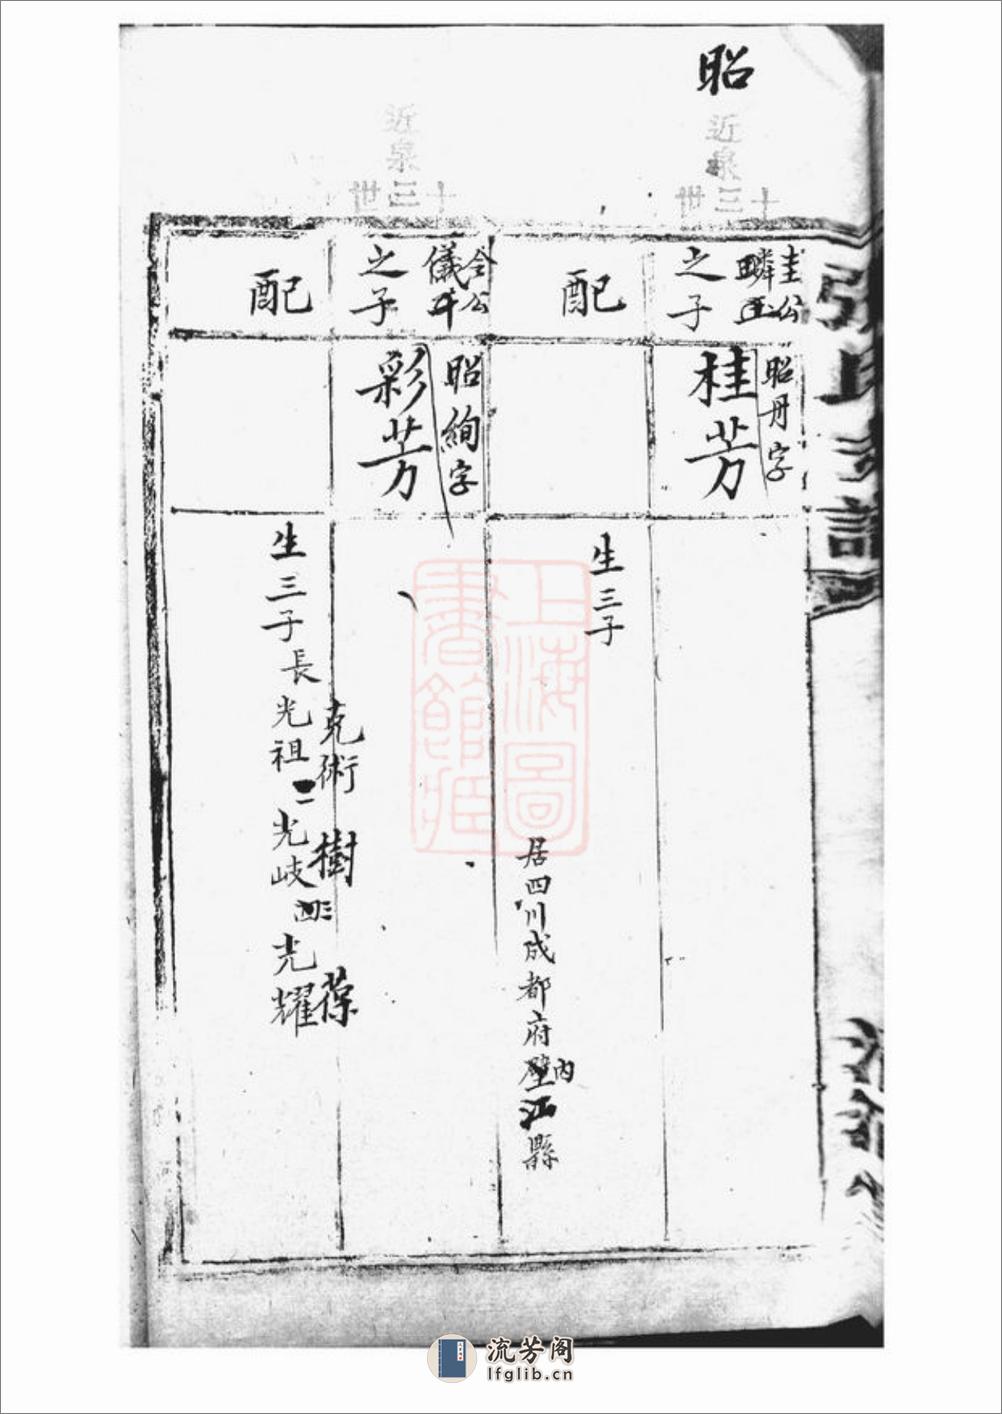 昭
近泉
十三世
圭公
之子
昭丹字
桂芳
配
生三子
居四川成都府內江縣
近泉
十三世
之子
昭絢字
彩芳
配
生三子長光祖二光岐三光耀
克術
樹
葆
張氏支譜
上海圖書館藏
流芳阁
lfglib.cn